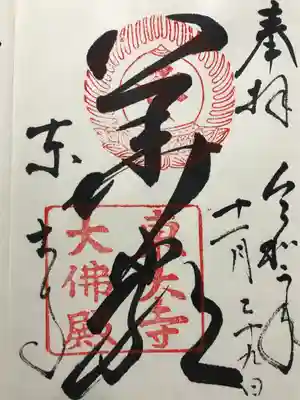 奉拝
令和二年
十一月二十九日
華厳
東大寺
東大寺
大佛殿